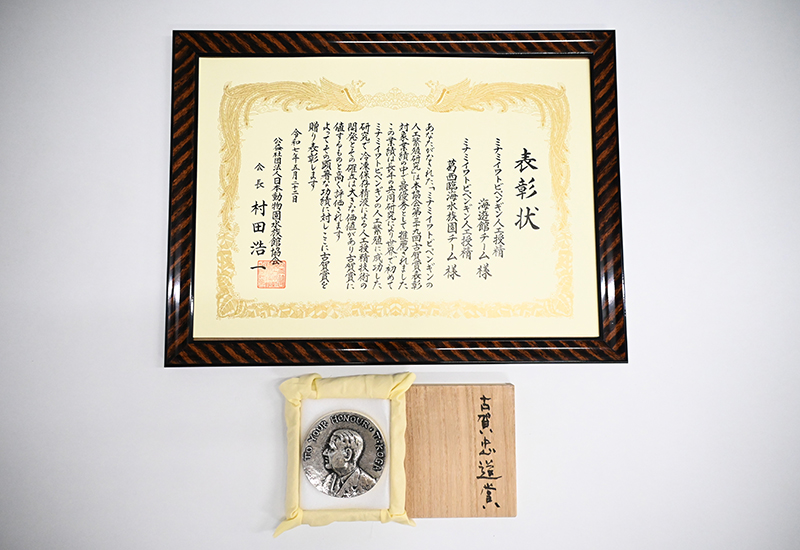 表彰状
ミナミイワトビペンギン人工授精
海遊館チーム 様
ミナミイワトビペンギン人工授精
葛西臨海水族園チーム 様
あなたがなされた、「ミナミイワトビペンギンの
人工繁殖研究」は本協会第三十九回古賀賞表彰
対象業績の中で最優秀として推薦されました
この業績は長年の共同研究により世界で初めて
ミナミイワトビペンギンの人工繁殖に成功した
研究で冷凍保存精液による人工授精技術の
開発とその確立は大きな価値があり古賀賞に
値するものと高く評価されます
よってその顕著な功績に対しここに古賀賞を
贈り表彰します
令和七年五月二十二日
公益社団法人日本動物園水族館協会
会長 村田浩一
TO YOUR HONOUR T.KOGA
古賀忠道賞